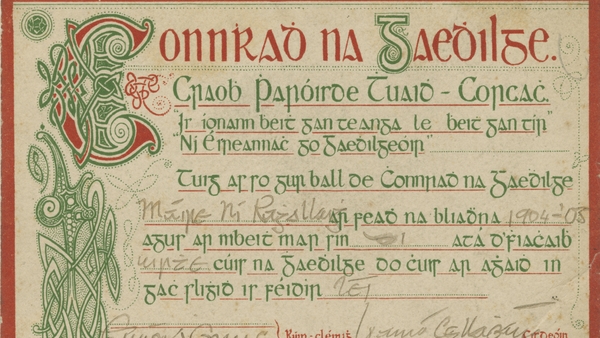 Connraḋ na Gaeḋilge.
Craoḃ Paróisde Tuaiḋ - Corcaċ.
"Is ionann beiṫ gan teanga le beiṫ gan tír"
Ní Éireannaċ go Gaeḋilgeóir."
Tuig as so gur ball de Ċonnraḋ na Gaeḋilge
Máire Ní ar feaḋ na bliaḋna 1904-'05
agus ar mbeiṫ mar sin di atá d'fiaċaiḃ
uirṫe cúis na Gaeḋilge do ċur ar aġaiḋ in
gaċ sliġiḋ is féidir léi
Rún-cléiriġ